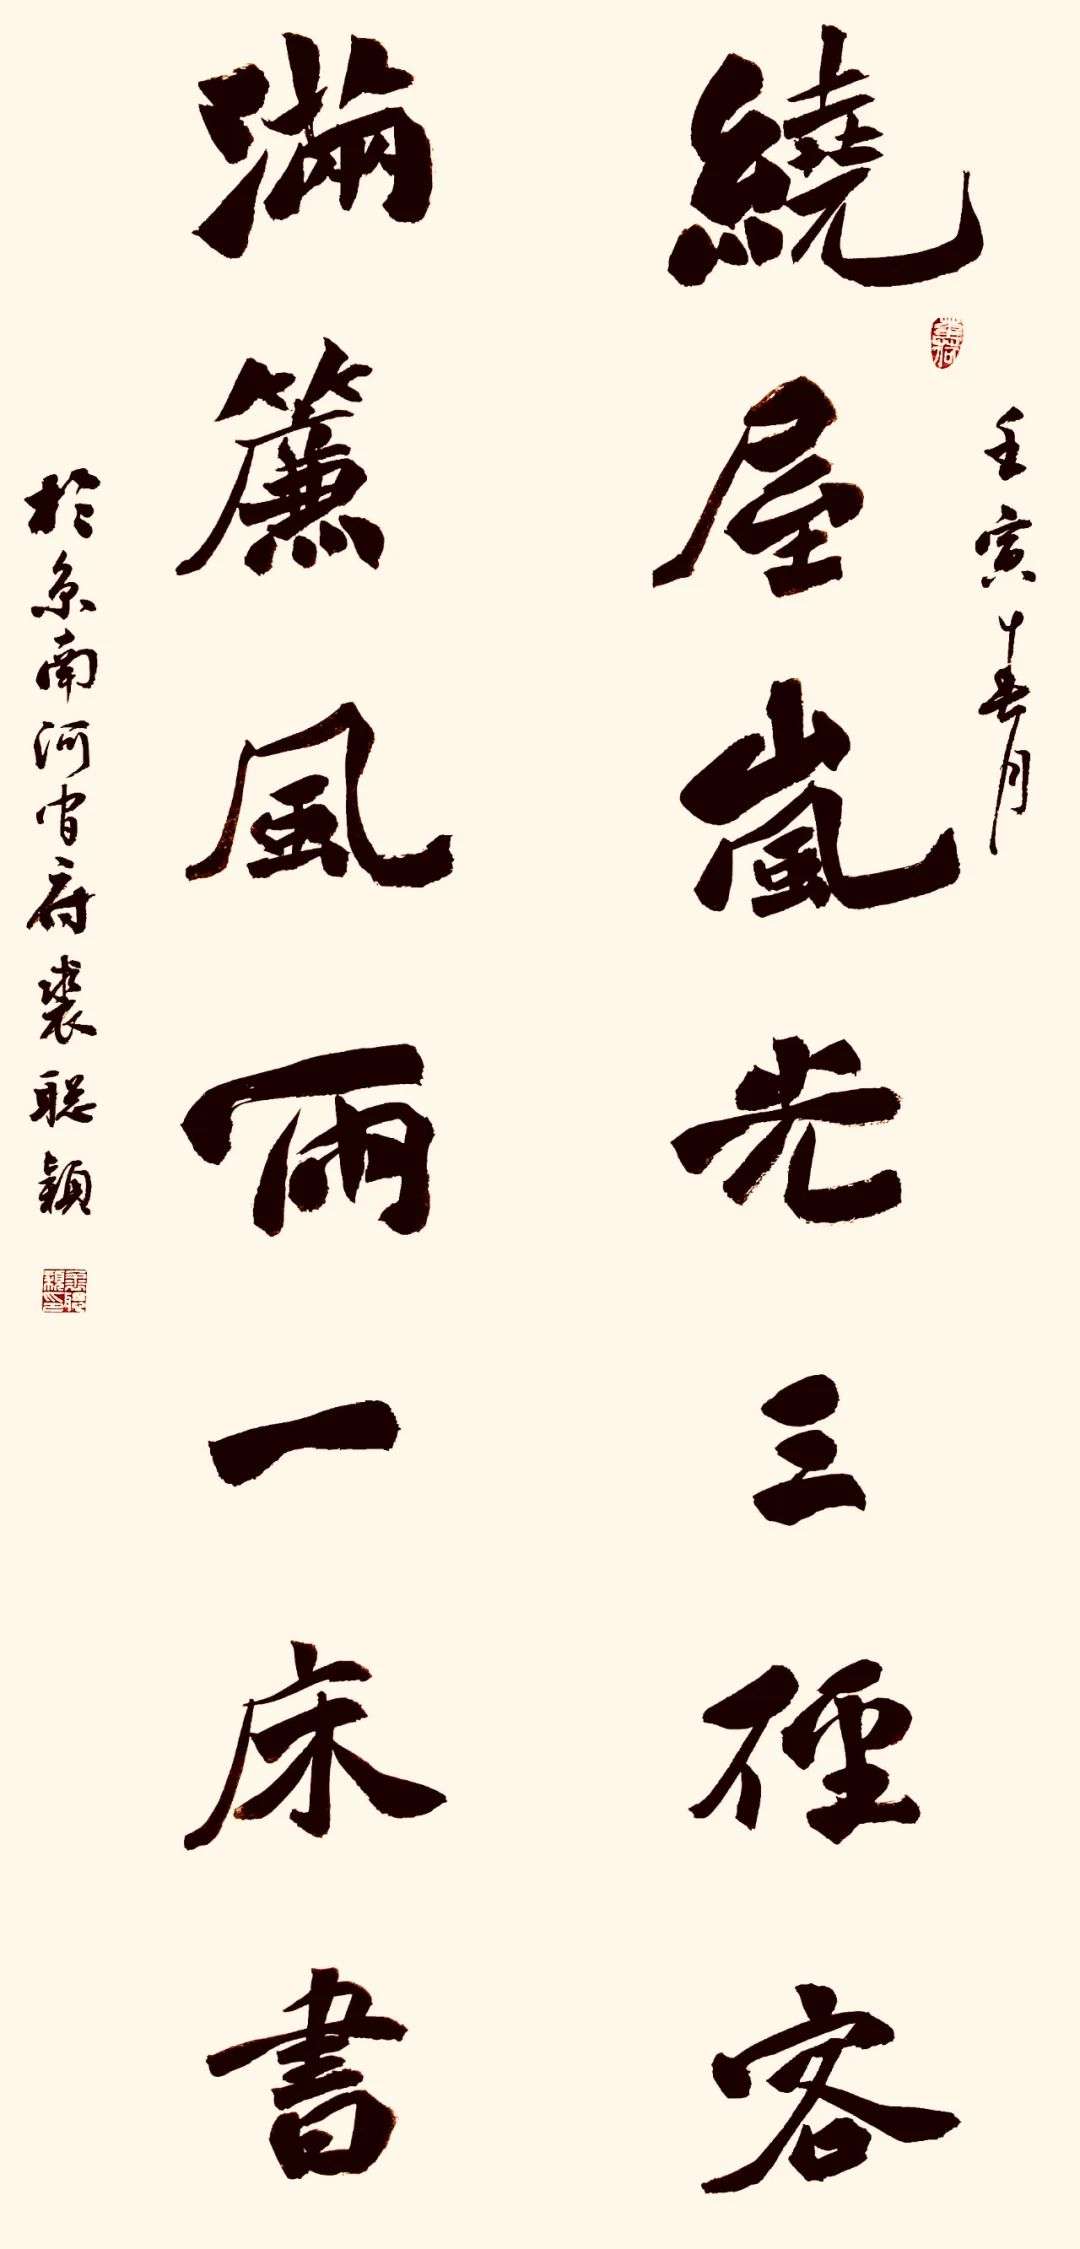 壬寅十月
繞屋嵐光三徑客
滿簾風雨一床書
於京南河间府裘聪穎